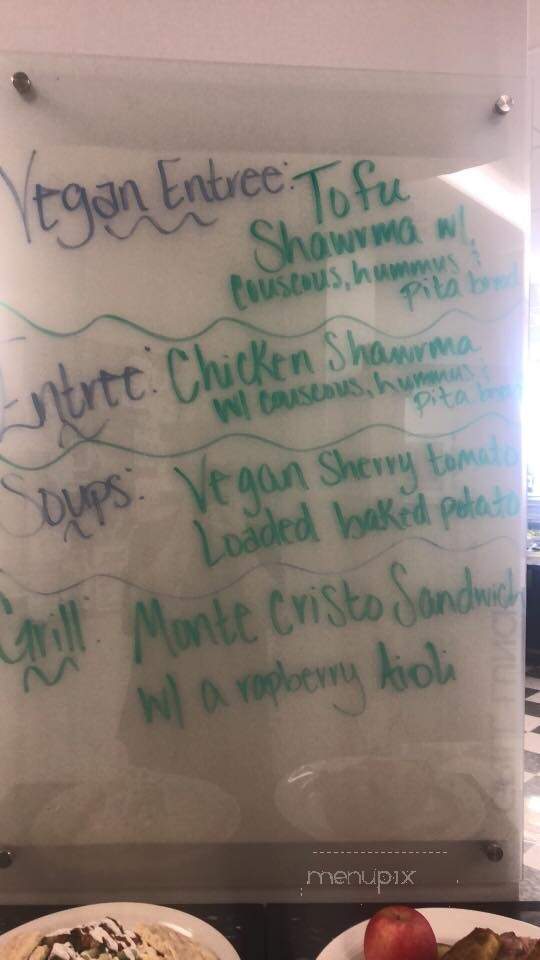 Vegan Entree: Tofu
Shawrma w/
couscous, hummus &
pita bread
Entree: Chicken Shawrma
w/ couscous, hummus &
pita bread
Soups: Vegan Sherry tomato
Loaded baked potato
Grill: Monte Cristo Sandwich
w/ a rapberry Aioli
menupix